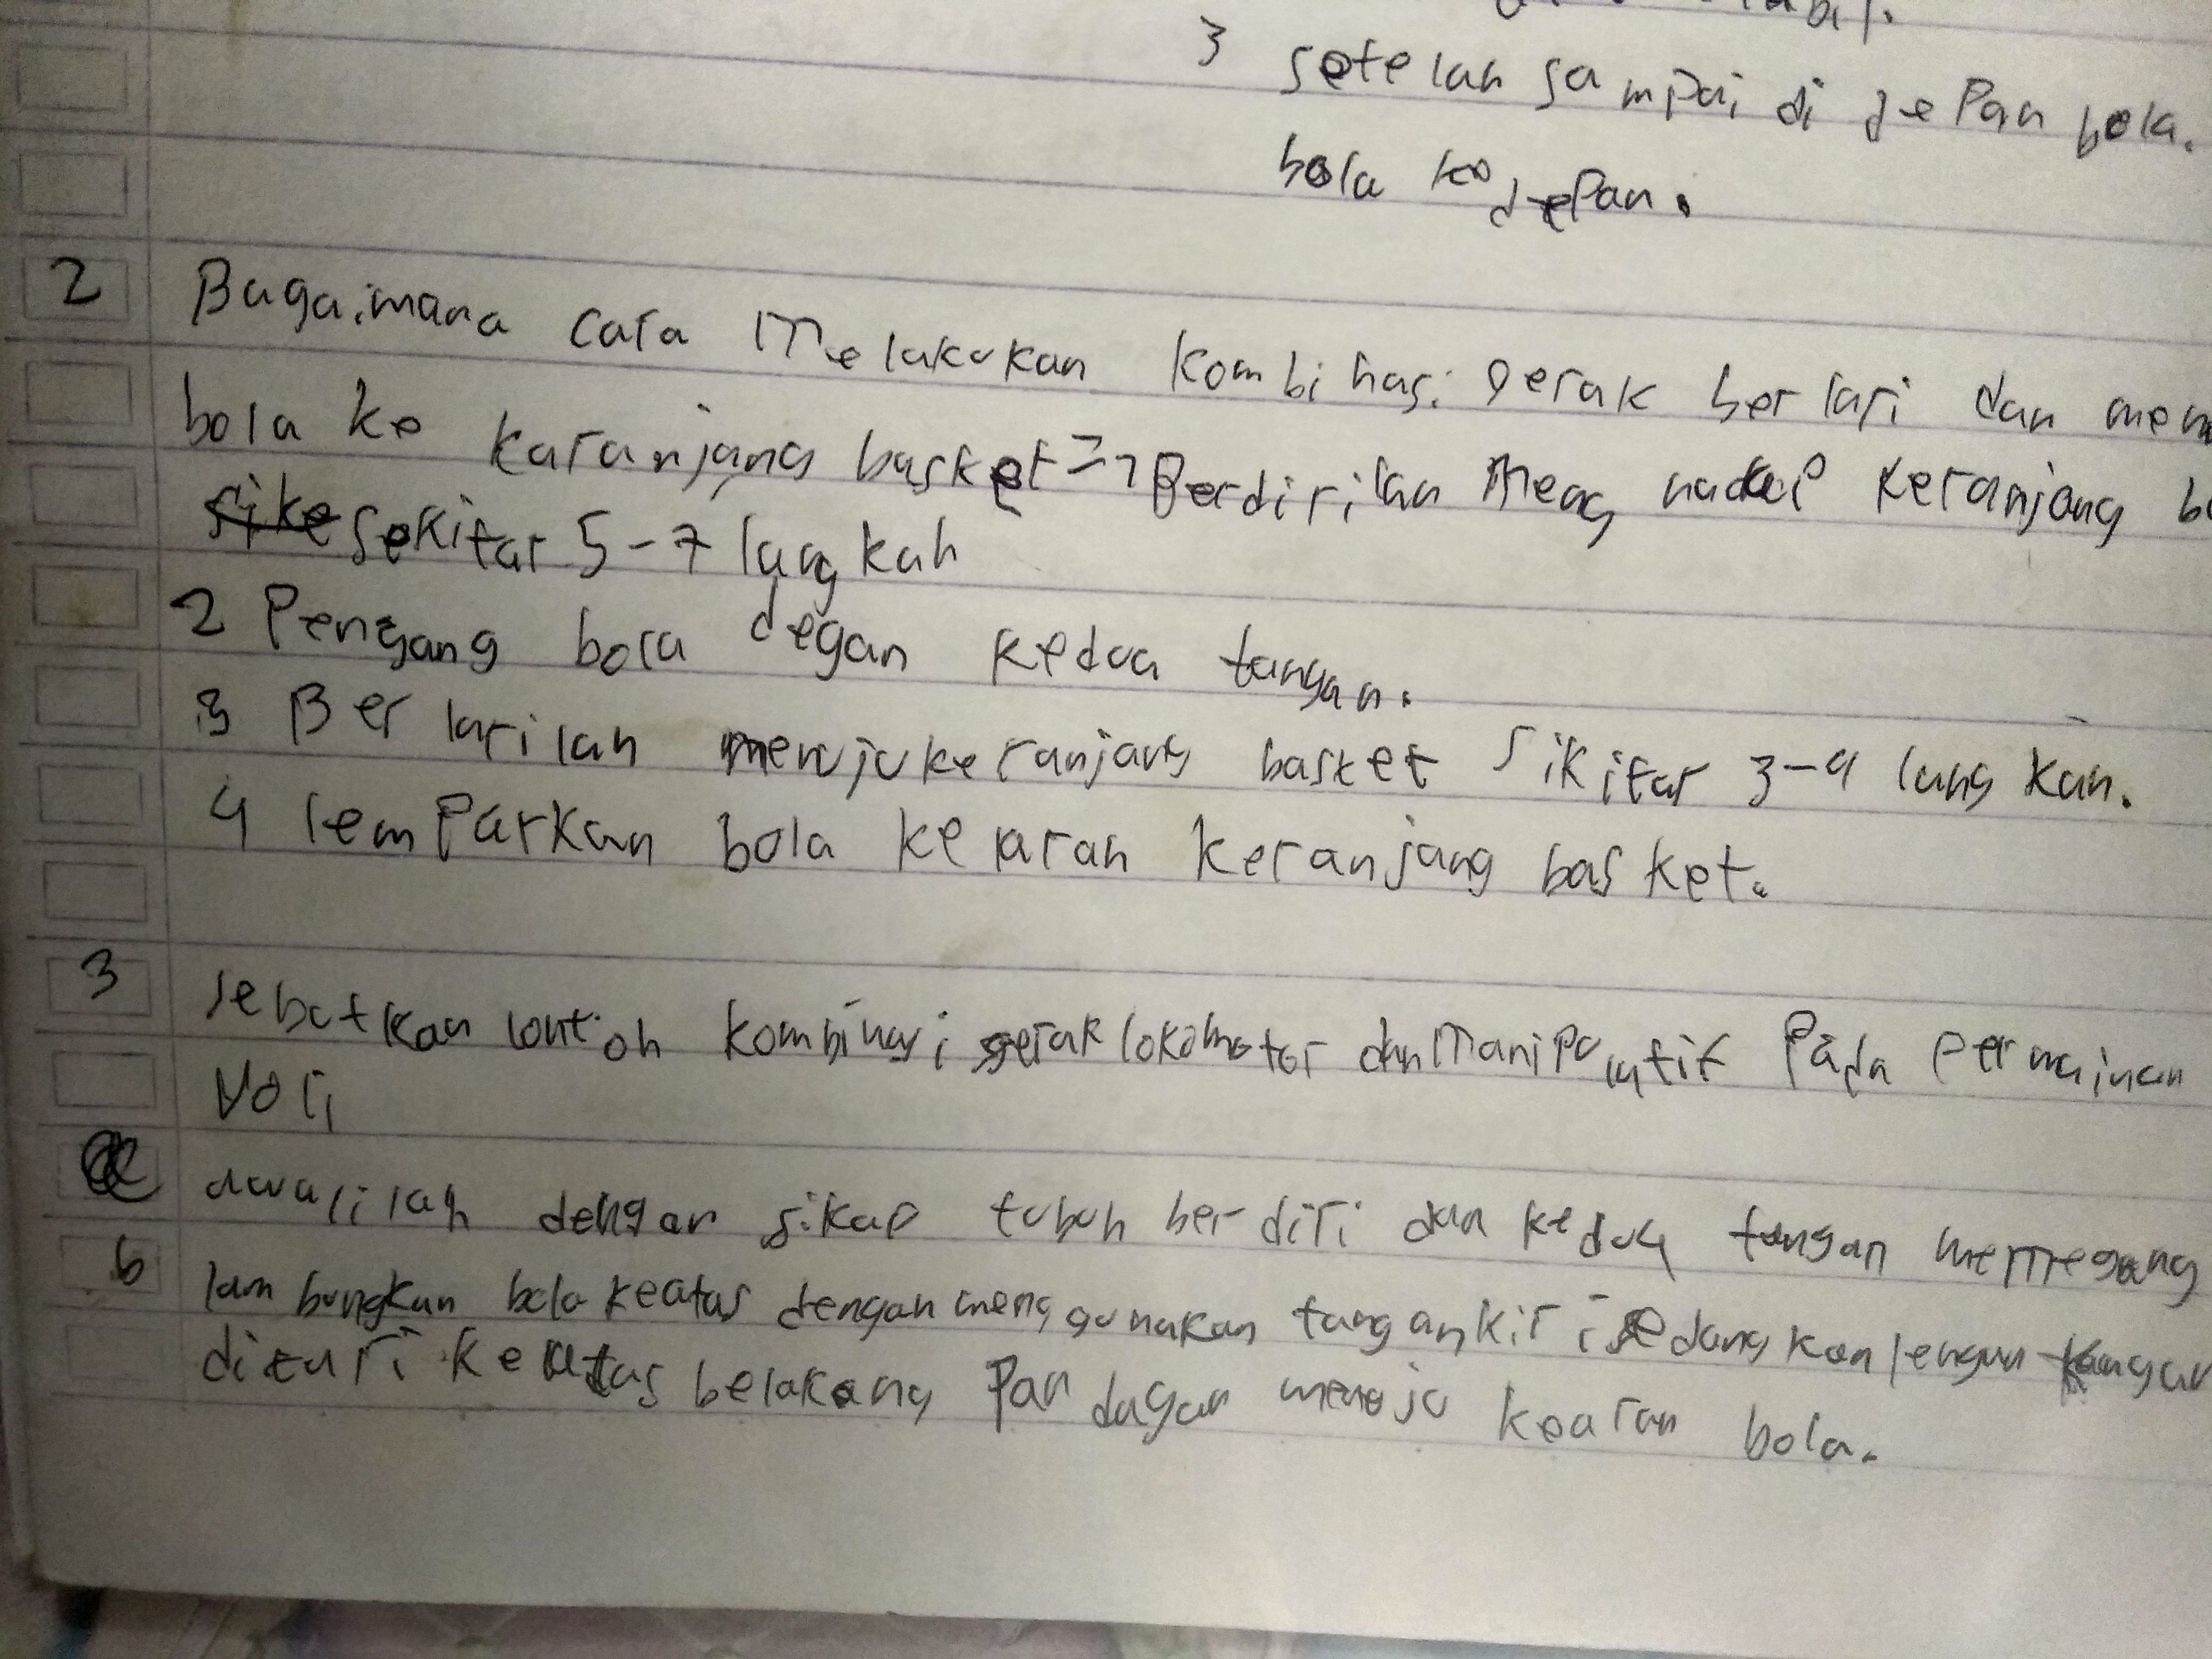 3 setelah sampai di depan bola.
bola ke depan.
2 Bagaimana cara melakukan kombinasi gerak berlari dan mem
bola ke karanjang basket => Berdirilah menghadap keranjang b
sekitar 5-7 langkah
2 Pengang bola degan kedua tangan.
3 Berlarilah menuju keranjang basket sikitar 3-4 langkah.
4 lemparkan bola ke arah keranjang basket.
3 sebutkan contoh kombinasi gerak lokomotor dan manipulatif pada permainan
voli
awalilah dengan sikap tubuh berdiri dan kedua tangan memegang
b lambungkan bola keatas dengan menggunakan tangan kiri sedangkan lengan tangan
ditari keatas belakang Pandagan menuju kearah bola.